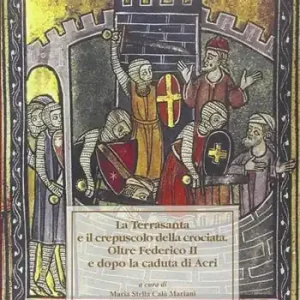 La Terrasanta
e il crepuscolo della crociata.
Oltre Federico II
e dopo la caduta di Acri
a cura di
Maria Stella Calò Mariani